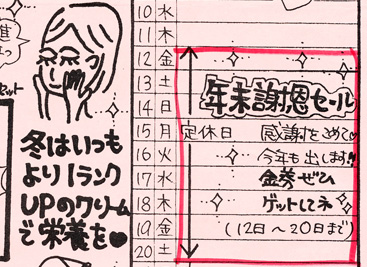 進
まっ
セット
冬はいつも
より1ランク
UPのクリーム
で栄養を
10 水
11 木
12 金
13 土
14 日
15 月 定休日
16 火
17 水
18 木
19 金
20 土
年末謝恩セール
感謝をこめて
今年も出します!!
ぜひ
ゲットしてネ
(12日〜20日まで)